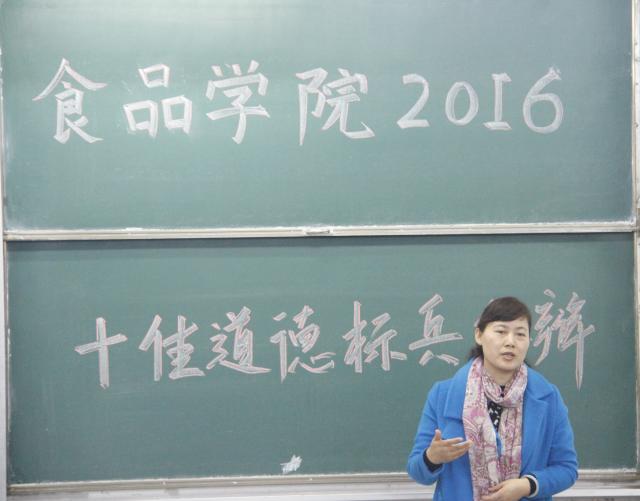 食品学院2016
十佳道德标兵 辩